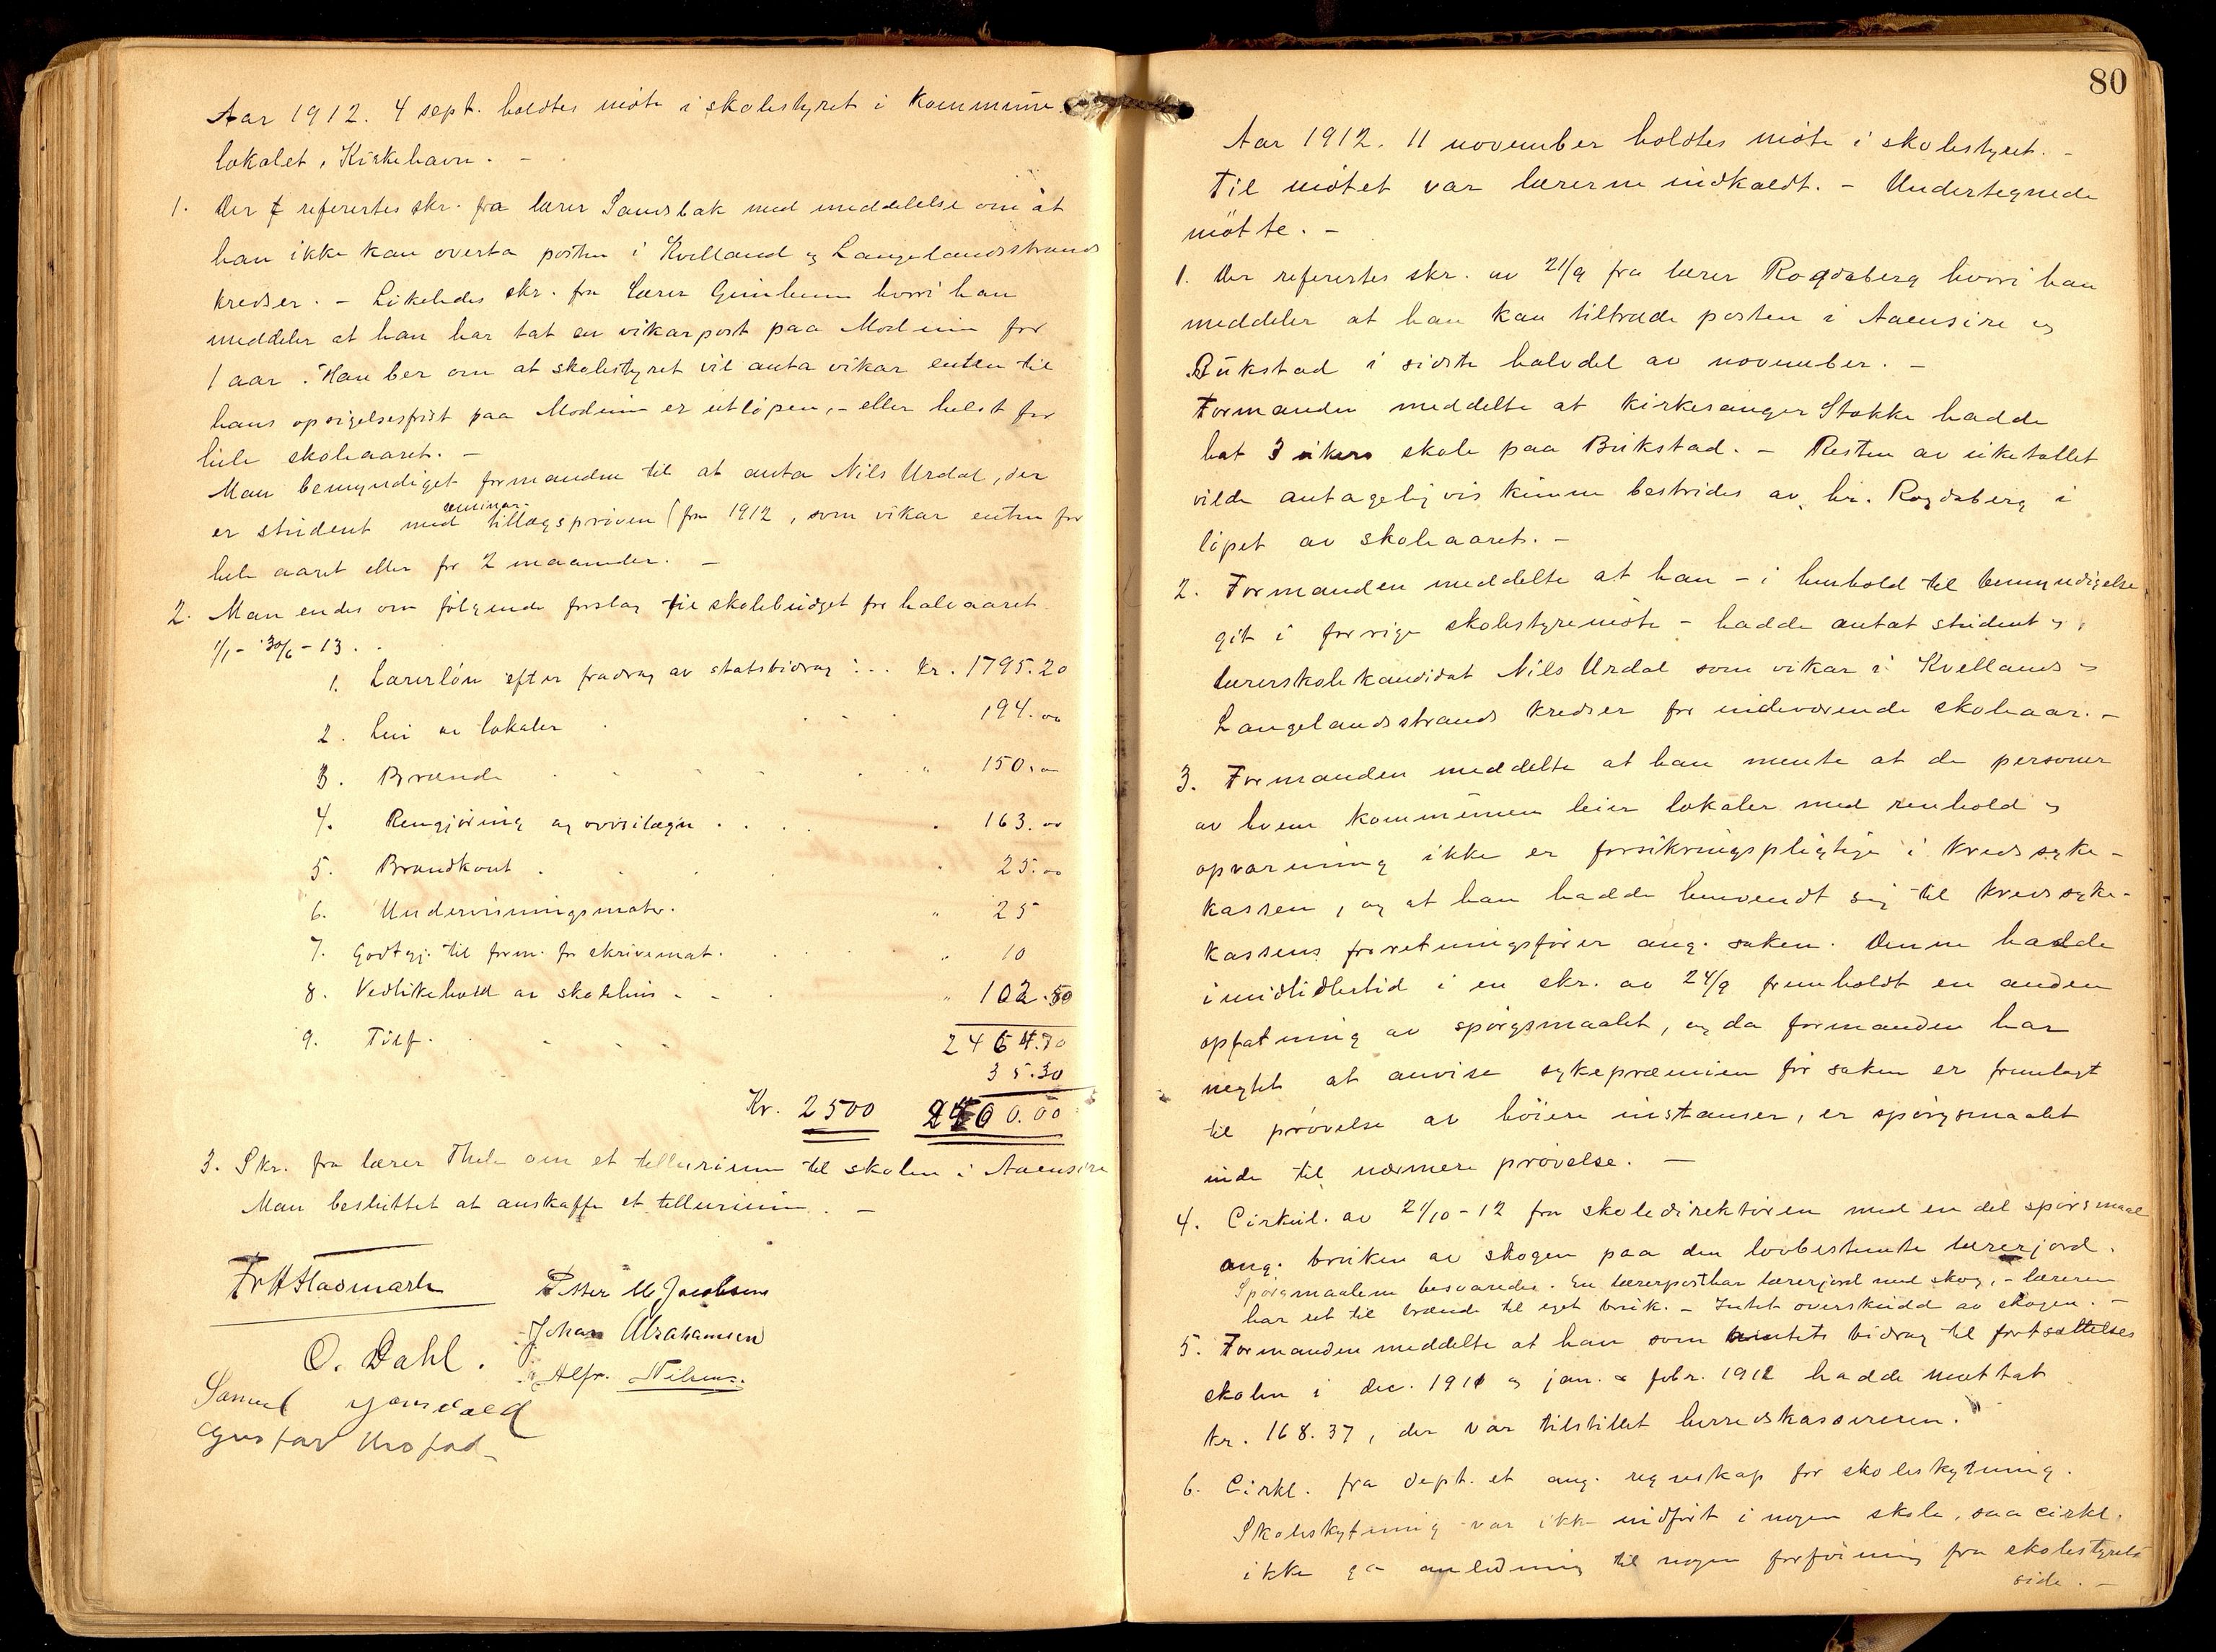 Aar 1912. 4 sept. holdtes møte i skolestyret i Kommune-
lokalet, Kirkehavn. -
1. Der refertes skr. fra lærer Samsbak med meddelelse om at
han ikke kan overta posten i Kvelland og Langelandsstrands
kredser. - Likeledes skr. fra lærer hvori han
meddeler at han har tat en vikarpost paa Modum for
1 aar. Han ber om at skolestyret vil anta vikar enten til
hans opsigelsesfrist paa Modum er utløpen, - eller helst for
hele skoleaaret. -
Man bemyndiget formanden til at anta Nils Urdal, der
er student med seminar-tillægsprøven fra 1912, som vikar enten for
hele aaret eller for 2 maaneder. -
2. Man endes om følgende forslag til skolebudget for halvaaret
1/1 - 30/6 - 13.
1. Lærerløn efter fradrag av statsbidrag : .. kr. 1795.20
2. Leie av lokaler . . . . 194.00
3. Brænde . . . . . " 150.00
4. Rengjøring og ovnsilægn . . . . 163.00
5. Brandkont . . . . " 25.00
6. Undervisningsmater. " 25
7. Godtgj. til form. for skrivemat. . . . " 10
8. Vedlikehold av skolehus . - . " 102.50
9. Tilf. . . . 2464.70
35.30
Kr. 2500 2500.00
3. Skr. fra lærer Thele om et tellurium til skolen i Aaensire
Man besluttet at anskaffe et tellurium. -
Fr H Hasmark Petter M Jacobsen
Johan Abrahamsen
O. Dahl. Alfr. Nilsen.
Samuel
Gustav
80
Aar 1912. 11 november holdtes møte i skolestyret. -
Til møtet var lærerne indkaldt. - Undertegnede
møtte. -
1. Der refertes skr. av 21/9 fra lærer Rogdaberg hvori han
meddeler at han kan tiltræde posten i Aaensire og
Bukstad i sidste halvdel av november. -
Formanden meddelte at kirkesanger Stokke hadde
hat 3 ukers skole paa Bukstad. - Resten av uketallet
vilde antageligvis kunne bestrides av hr. Rogdaberg i
løpet av skoleaaret. -
2. Formanden meddelte at han - i henhold til bemyndigelse
git i forrige skolestyremøte - hadde antat student og
lærerskolekandidat Nils Urdal som vikar i Kvellands og
Langelandsstrands kredser for indeværende skoleaar. -
3. Formanden meddelte at han mente at de personer
av hvem kommunen leier lokaler med renhold og
opvarming ikke er forsikringspligtige i kredssyke-
kassen, og at han hadde henvendt sig til kredssyke-
kassens forretningsfører ang. saken. Denne hadde
imidlidlertid i en skr. av 24/9 fremholdt en anden
opfatning av spørgsmaalet, og da formanden har
negtet at anvise sykepræmien før saken er fremlagt
til prøvelse av høiere instanser, er spørgsmaalet
inde til nærmere prøvelse. -
4. Cirkul. av 21/10 - 12 fra skoledirektøren med en del spørsmaal
ang. bruken av skogen paa den lovbestemte lærerjord.
Spørgsmaalene besvaredes. En lærerpost har lærerjord med skog, - læreren
har ret til brænde til eget bruk. - Intet overskudd av skogen. -
5. Formanden meddelte at han som bidrag til fortsættelses
skolen i dec. 1911 og jan. & febr. 1912 hadde mottat
kr. 168.37, der var tilstillet herredskassereren.
6. Cirkl. fra dept. et ang. regnskap for skoleskytning.
Skoleskytning var ikke indført i nogen skole, saa cirkl.
ikke ga anledning til nogen forføining fra skolestyrets
side. -